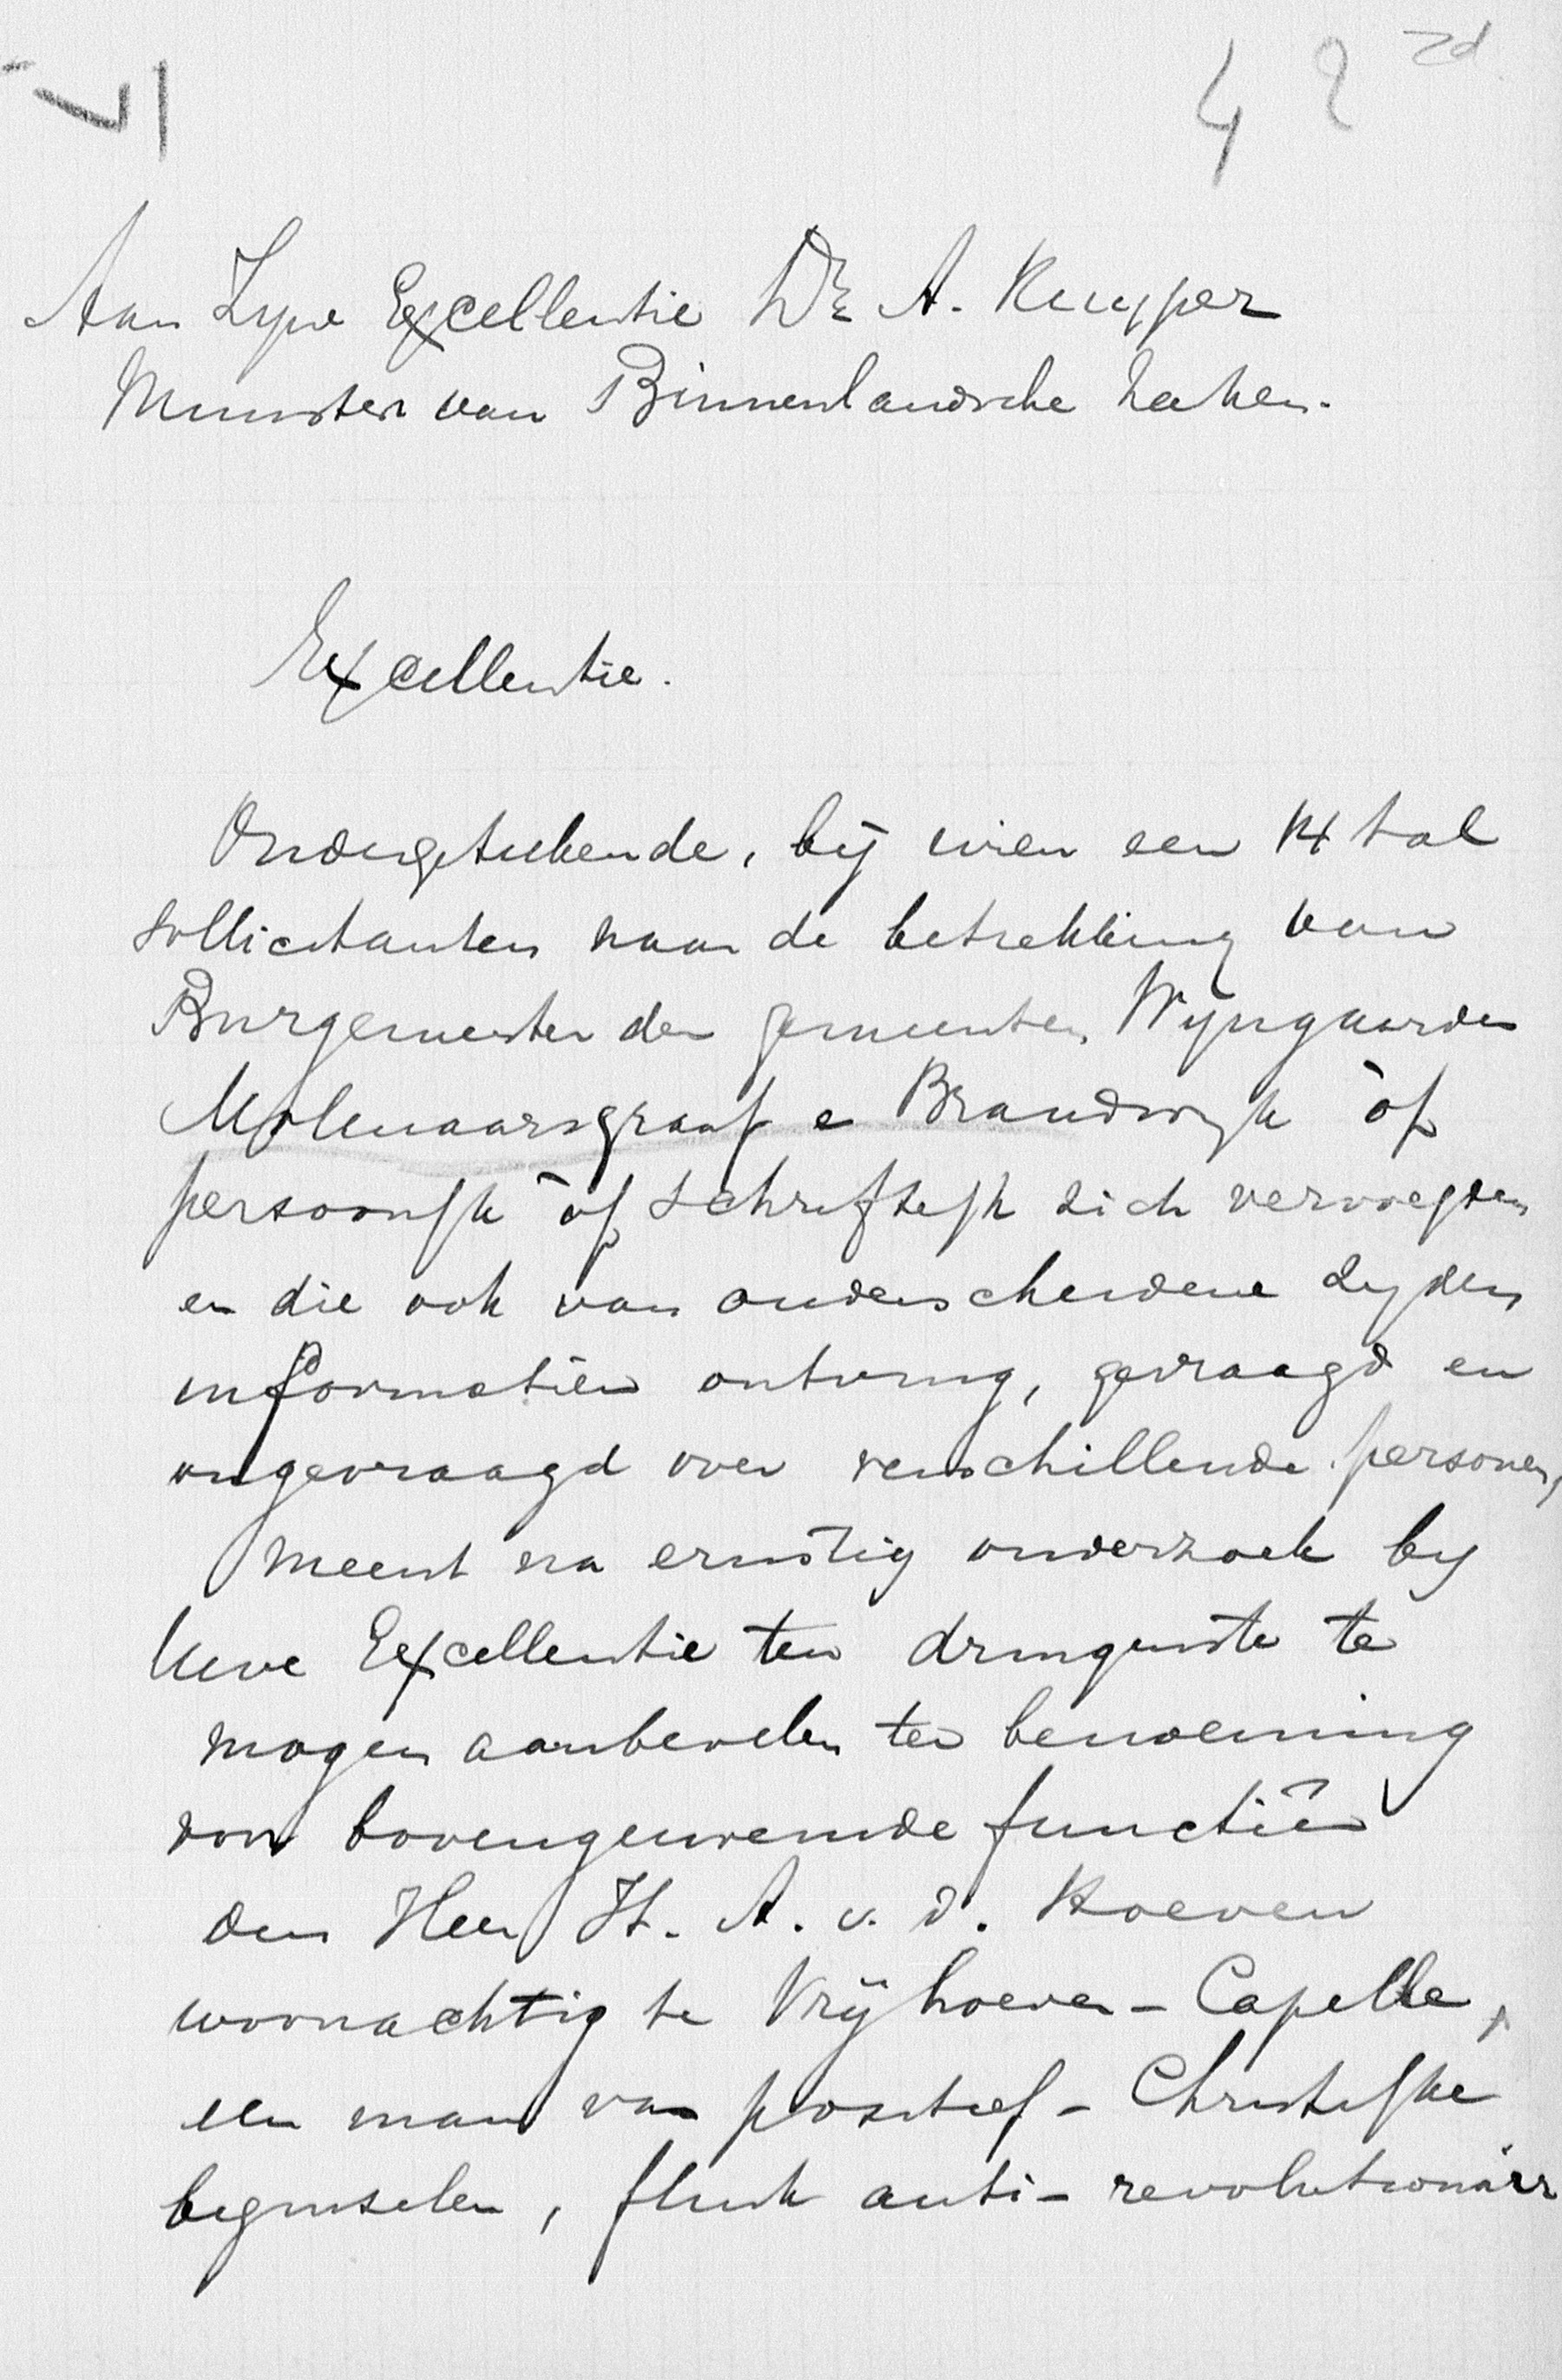 VI
4 2 zd
Aan Zyne Excellentie Dr A. Kuyper
Minister van Binnenlandsche Zaken.
Excellentie.
Ondergetekende, bij wien een 14 tal
sollicitanten naar de betrekking van
Burgemeester der gemeenten Wijngaarden
Molenaarsgraaf e Brandwyk òf
persoonlyk òf schriftelyk zich vervoegden
en die ook van onderscheidene zyden
informatiën ontving, gevraagd en
ongevraagd over verschillende personen,
meent na ernstig onderzoek by
Uwe Excellentie ten dringenste te
mogen aanbevelen ter benoeming
voor bovengenoemde functiën
den Heer H. A. v. d. Hoeven
woonachtig te Vrijhoeven - Capelle,
een man van positief - Christelyke
beginselen, flink anti - revolutionair